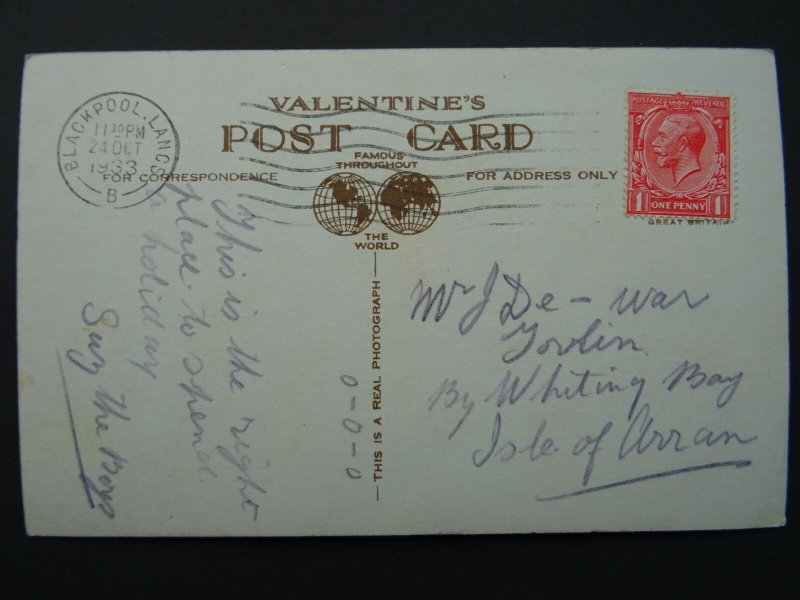 BLACKPOOL. LANCS
11 30 PM
24 OCT
1933
B
VALENTINE'S
POST CARD
FAMOUS THROUGHOUT
THE WORLD
FOR CORRESPONDENCE
FOR ADDRESS ONLY
THIS IS A REAL PHOTOGRAPH
POSTAGE REVENUE
1 ONE PENNY 1
GREAT BRITAIN
This is the right
place to spend
a holiday
Suz the Boys
0-0-0
Mr J De-war
By Whiting Bay
Isle of Arran